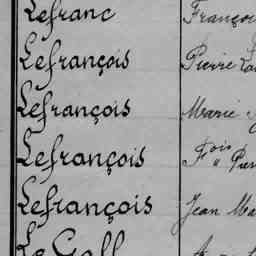 Lefranc Françoi
Lefrançois Pierre
Lefrançois Marie
Lefrançois Fois
Lefrançois Jean Ma
Le Gall